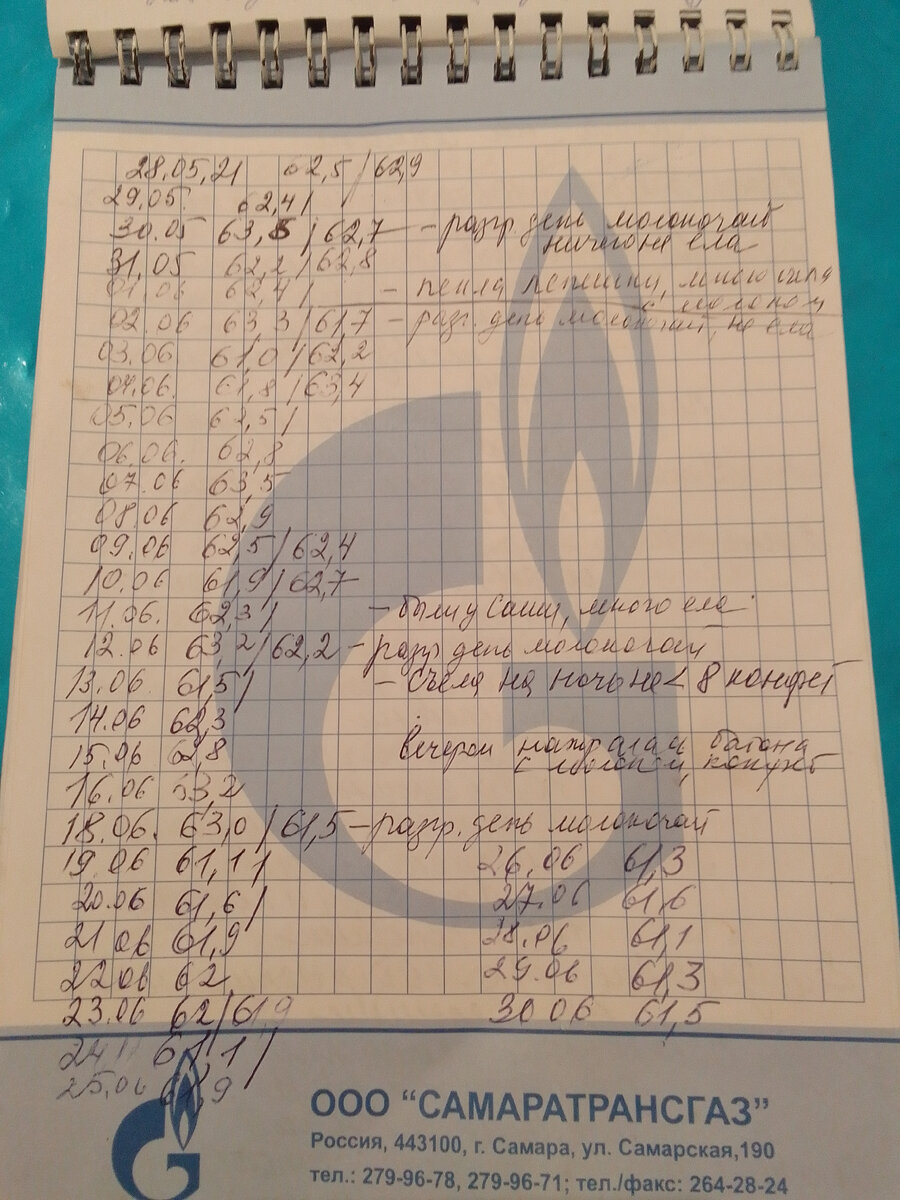 28.05.21 62,5 / 62,9
29.05. 62,4 /
30.05 63,5 / 62,7 - разгр. день молокочай
ничего не ела
31.05 62,2 / 62,8
01.06 62,4 / - пекла лепешки, много
с молоком
02.06 63,3 / 61,7 - разг. день молокочай, не ела
03.06 61,0 / 62,2
04.06. 61,8 / 63,4
05.06 62,5 /
06.06. 62,8
07.06 63,5
08.06 62,9
09.06 62,5 / 62,4
10.06 61,9 / 62,7
11.06. 62,3 / - были у Саши, много ела.
12.06 63,2 / 62,2 - разгр день молокочай
13.06 61,5 / - съела на ночь не < 8 конфет
14.06 62,3
15.06 62,8 Вечером батона
с молоком,
16.06 63,2
18.06. 63,0 / 61,5 - разгр. день молокочай
19.06 61,1 /
20.06 61,6 /
21 06 61,9
22 06 62
23.06 62 / 61,9
24 61,1 /
25.06 61,9
26.06 61,3
27.06 61,6
28.06 61,1
29.06 61,3
30 06 61,5
ООО “САМАРАТРАНСГАЗ”
Россия, 443100, г. Самара, ул. Самарская,190
тел.: 279-96-78, 279-96-71; тел./факс: 264-28-24